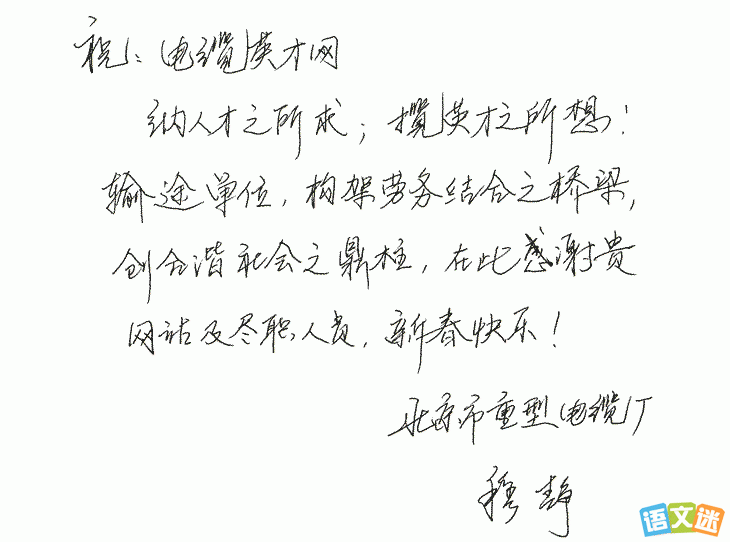 祝：电缆英才网
纳人才之所求；揽英才之所想！
输途单位，构架劳务结合之桥梁，
创合谐社会之鼎柱，在此感谢贵
网站及尽职人员，新春快乐！
北京市重型电缆厂
穆静
语文迷